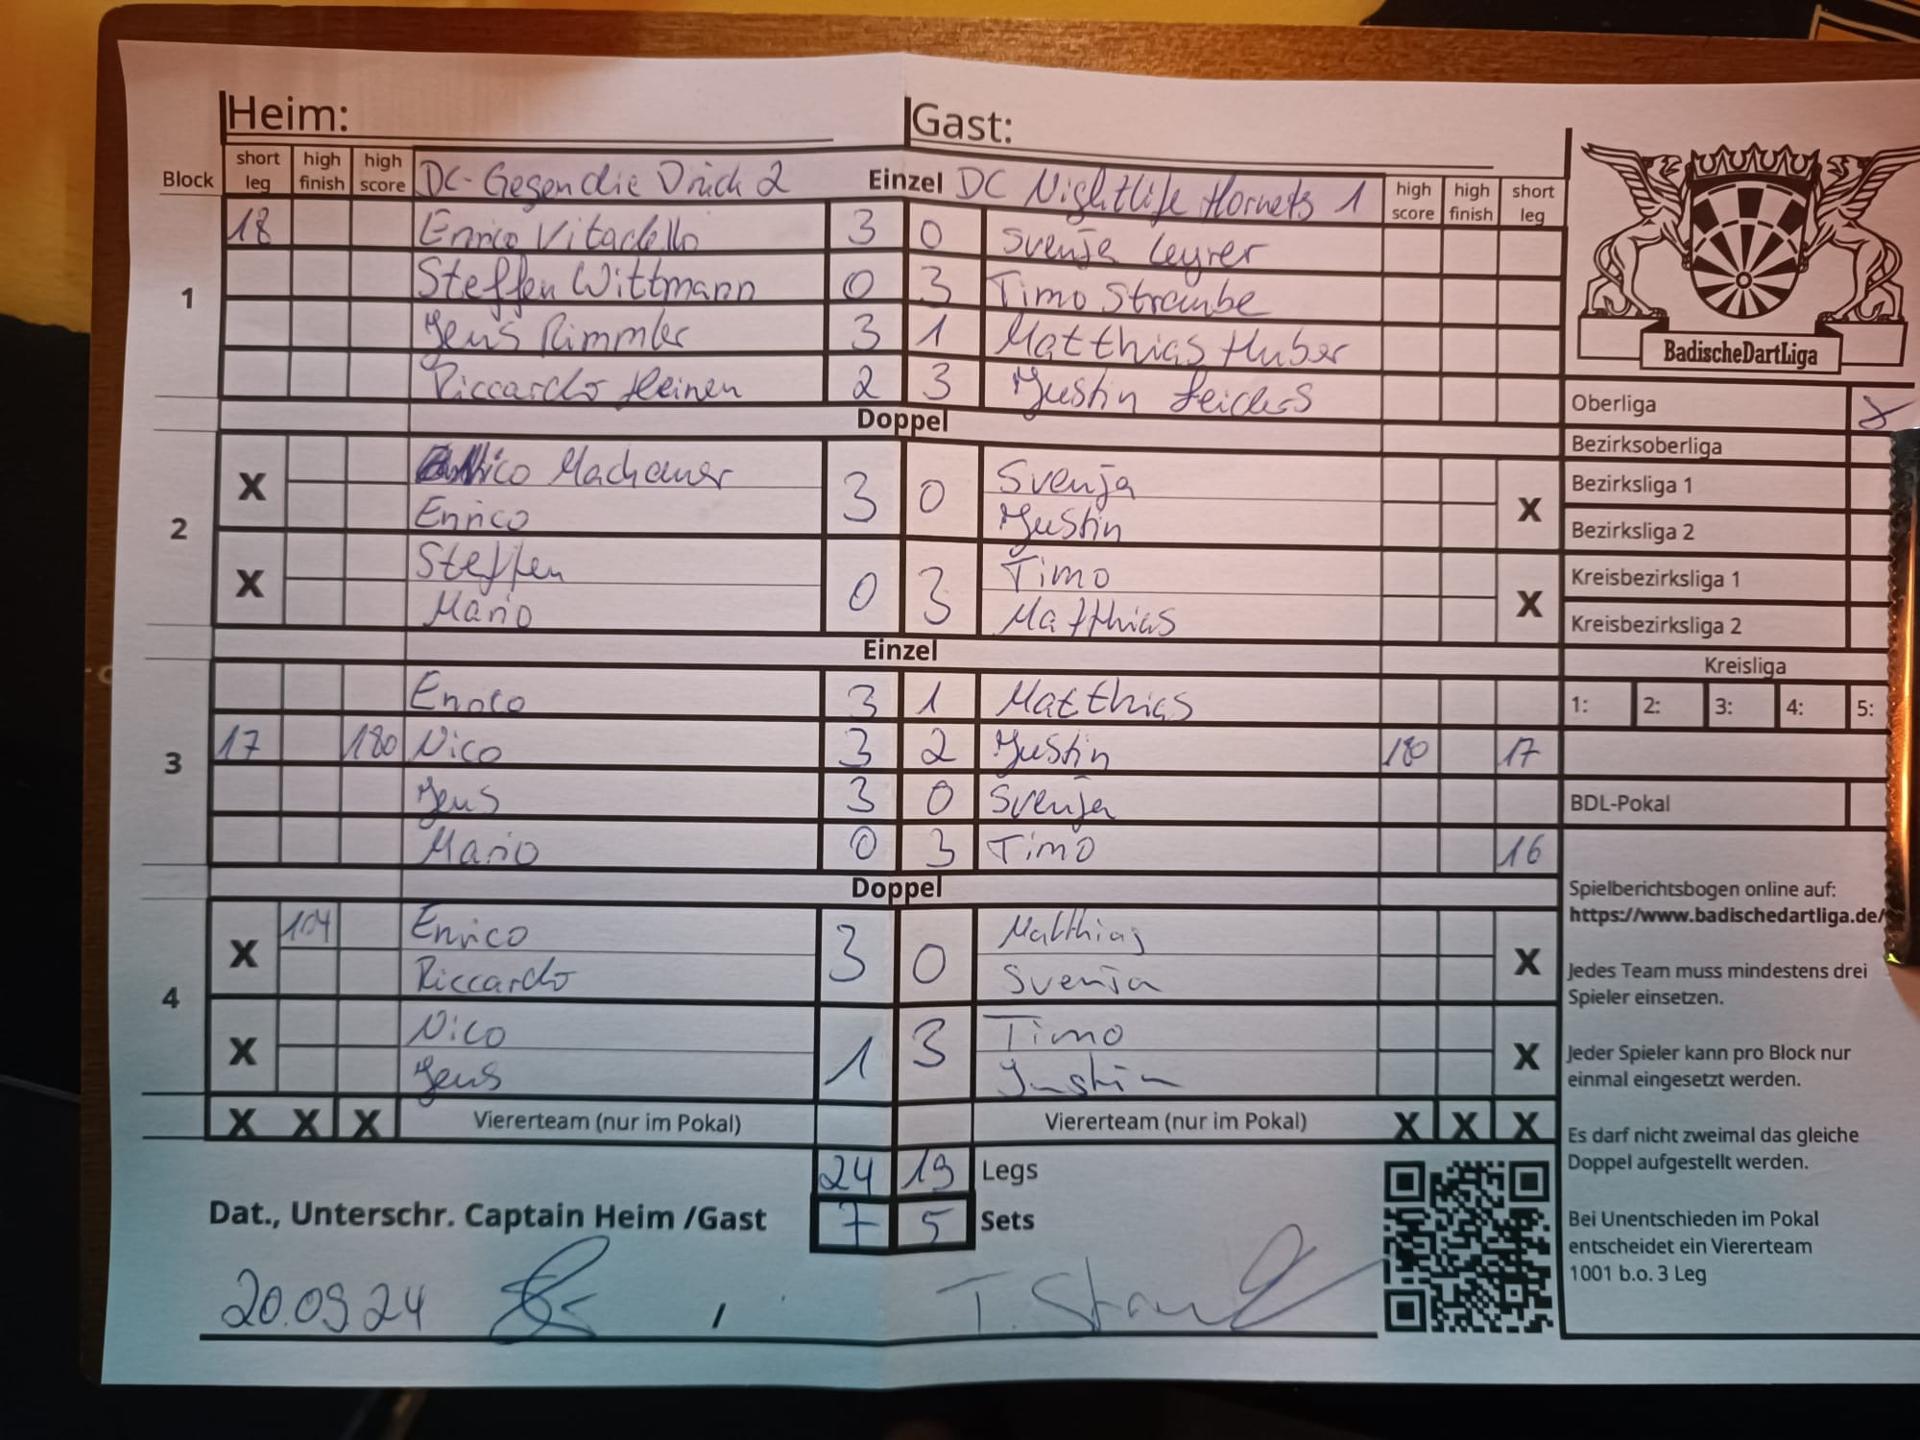 Heim: Gast:
Block short leg high finish high score DC-Gegen die Drück 2 Einzel DC Nightlife Hornets 1 high score high finish short leg
1
18 Enrico Vitadello 3 0 Svenja Leyrer
Steffen Wittmann 0 3 Timo Straube
Jens Rimmler 3 1 Matthias Huber
Riccardo Heinen 2 3 Justin Seiders
Doppel
2
X Nico Machauer 3 0 Svenja X
Enrico Justin
X Steffen 0 3 Timo X
Mario Matthias
Einzel
3
Enrico 3 1 Matthias
17 180 Nico 3 2 Justin 180 17
Jens 3 0 Svenja
Mario 0 3 Timo 16
Doppel
4
X 104 Enrico 3 0 Matthias X
Riccardo Svenja
X Nico 1 3 Timo X
Jens Justin
X X X Vierterteam (nur im Pokal) Vierterteam (nur im Pokal) X X X
24 19 Legs
7 5 Sets
Dat., Unterschr. Captain Heim /Gast
20.09.24 T. Straube
BadischeDartLiga
Oberliga X
Bezirksoberliga
Bezirksliga 1
Bezirksliga 2
Kreisbezirksliga 1
Kreisbezirksliga 2
Kreisliga
1: 2: 3: 4: 5:
BDL-Pokal
Spielberichtsbogen online auf:
https://www.badischedartliga.de/
Jedes Team muss mindestens drei
Spieler einsetzen.
Jeder Spieler kann pro Block nur
einmal eingesetzt werden.
Es darf nicht zweimal das gleiche
Doppel aufgestellt werden.
Bei Unentschieden im Pokal
entscheidet ein Viererteam
1001 b.o. 3 Leg